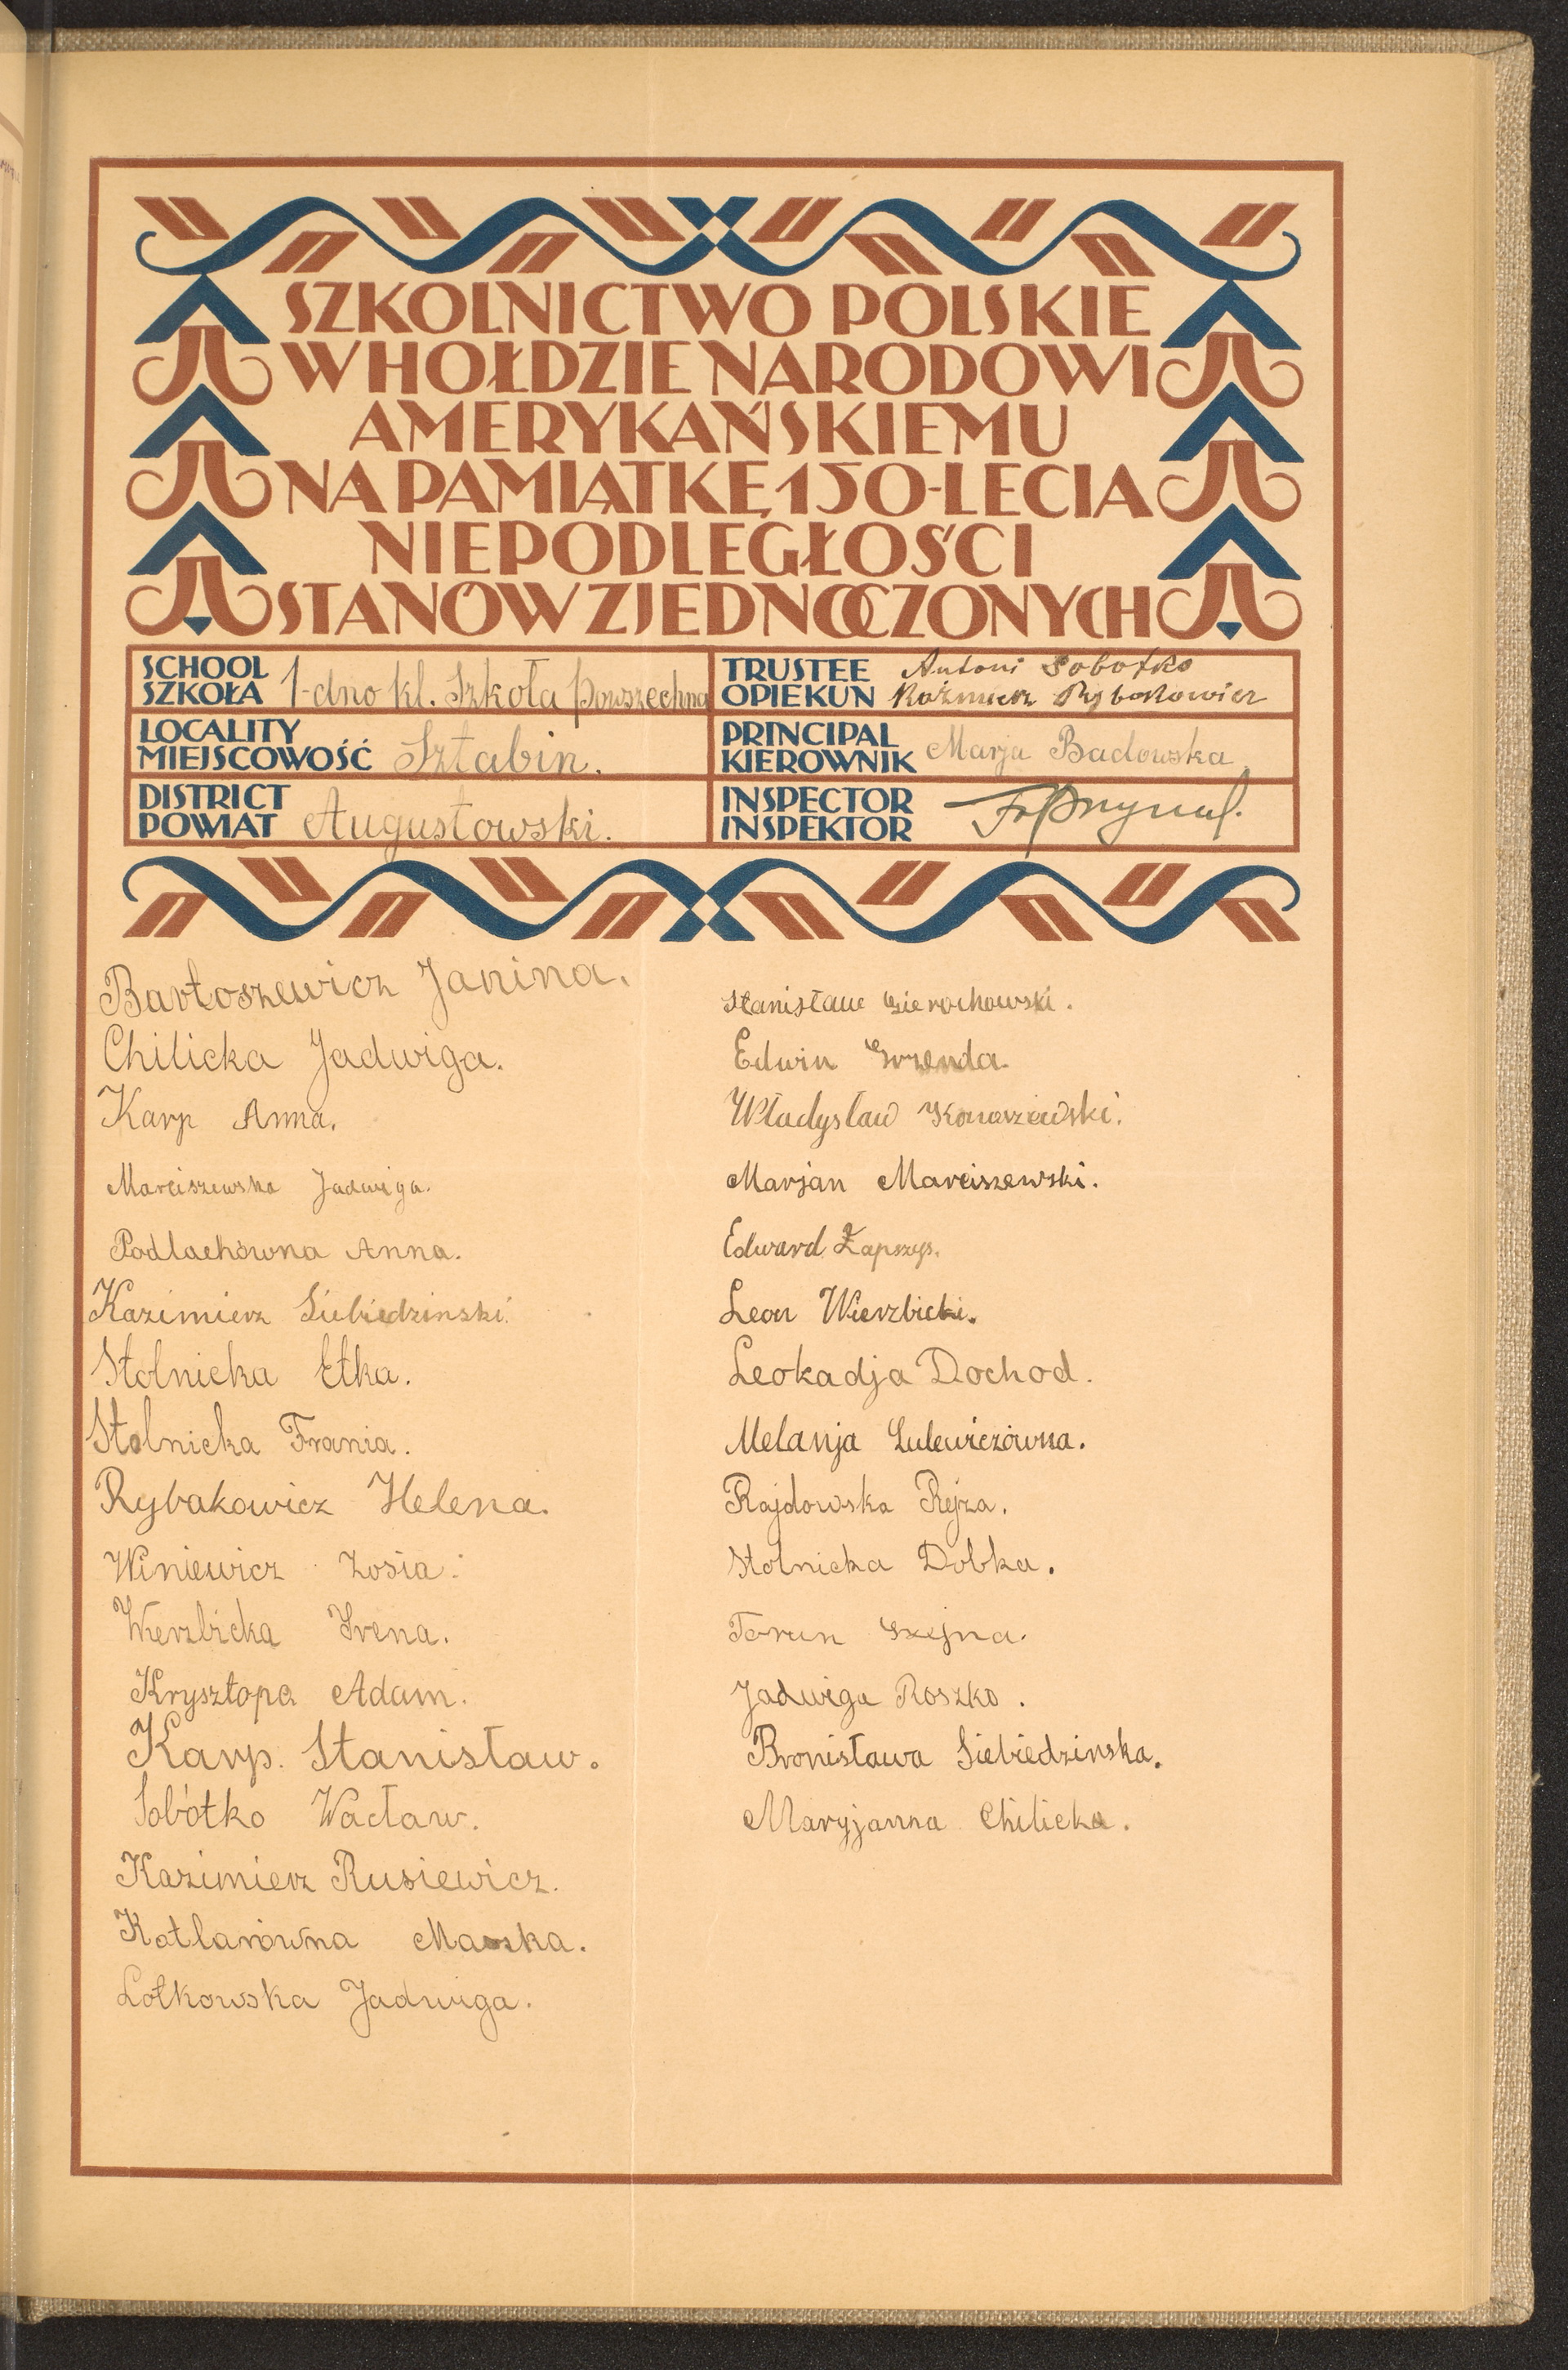 SZKOLNICTWO POLSKIE
W HOŁDZIE NARODOWI
AMERYKAŃSKIEMU
NA PAMIĄTKĘ 150-LECIA
NIEPODLEGŁOŚCI
STANÓW ZJEDNOCZONYCH
SCHOOL
SZKOŁA 1-dno kl. Szkoła Powszechna
TRUSTEE Antoni Sobotko
OPIEKUN Kaźmierz Rybakowicz
LOCALITY
MIEJSCOWOŚĆ Sztabin.
PRINCIPAL
KIEROWNIK Marja Badowska
DISTRICT
POWIAT Augustowski.
INSPECTOR
INSPEKTOR
Bartoszewicz Janina.
Chilicka Jadwiga.
Karp Anna.
Marciszewska Jadwiga.
Podlachówna Anna.
Kazimierz Siebiedzinski.
Stolnicka Etka.
Stolnicka Frania.
Rybakowicz Helena.
Winiewicz Zosia.
Wierzbicka Irena.
Krysztopa Adam.
Karp. Stanisław.
Sobótko Wacław.
Kazimierz Rusiewicz.
Kotlarówna Maszka.
Lotkowska Jadwiga.
Stanisław Sierochowski.
Edwin Grzenda.
Władysław Konarzewski.
Marjan Marciszewski.
Edward Zaprzys.
Leon Wierzbicki.
Leokadja Dochod.
Melanja Lulewiczówna.
Rajdowska Rejza.
Stolnicka Dobka.
Torun Szejna.
Jadwiga Roszko.
Bronisława Siebiedzinska.
Maryjanna Chilicka.